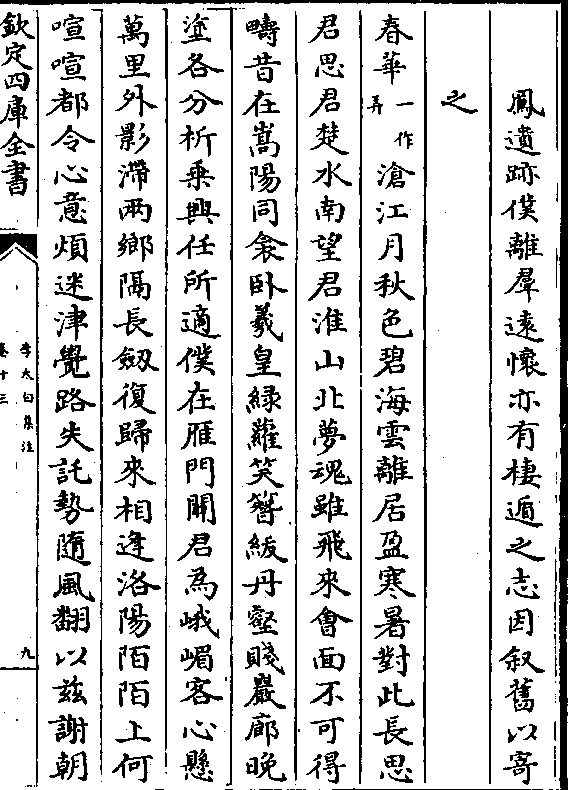 鳳遺跡僕離羣遠懷亦有棲遁之志因叙舊以寄
之
春華一作弄滄江月秋色碧海雲離居盈寒暑對此長思
君思君楚水南望君淮山北夢魂雖飛來會面不可得
疇昔在嵩陽同衾卧羲皇緑蘿笑簪紱丹壑賤巖廊晚
塗各分析乗興任所適僕在雁門闗君為峨嵋客心懸
萬里外影滯兩鄉隔長劒復歸來相逢洛陽陌陌上何
喧喧都令心意煩迷津覺路失託勢隨風翻以兹謝朝
欽定四庫全書
李太白集注
卷十三
九